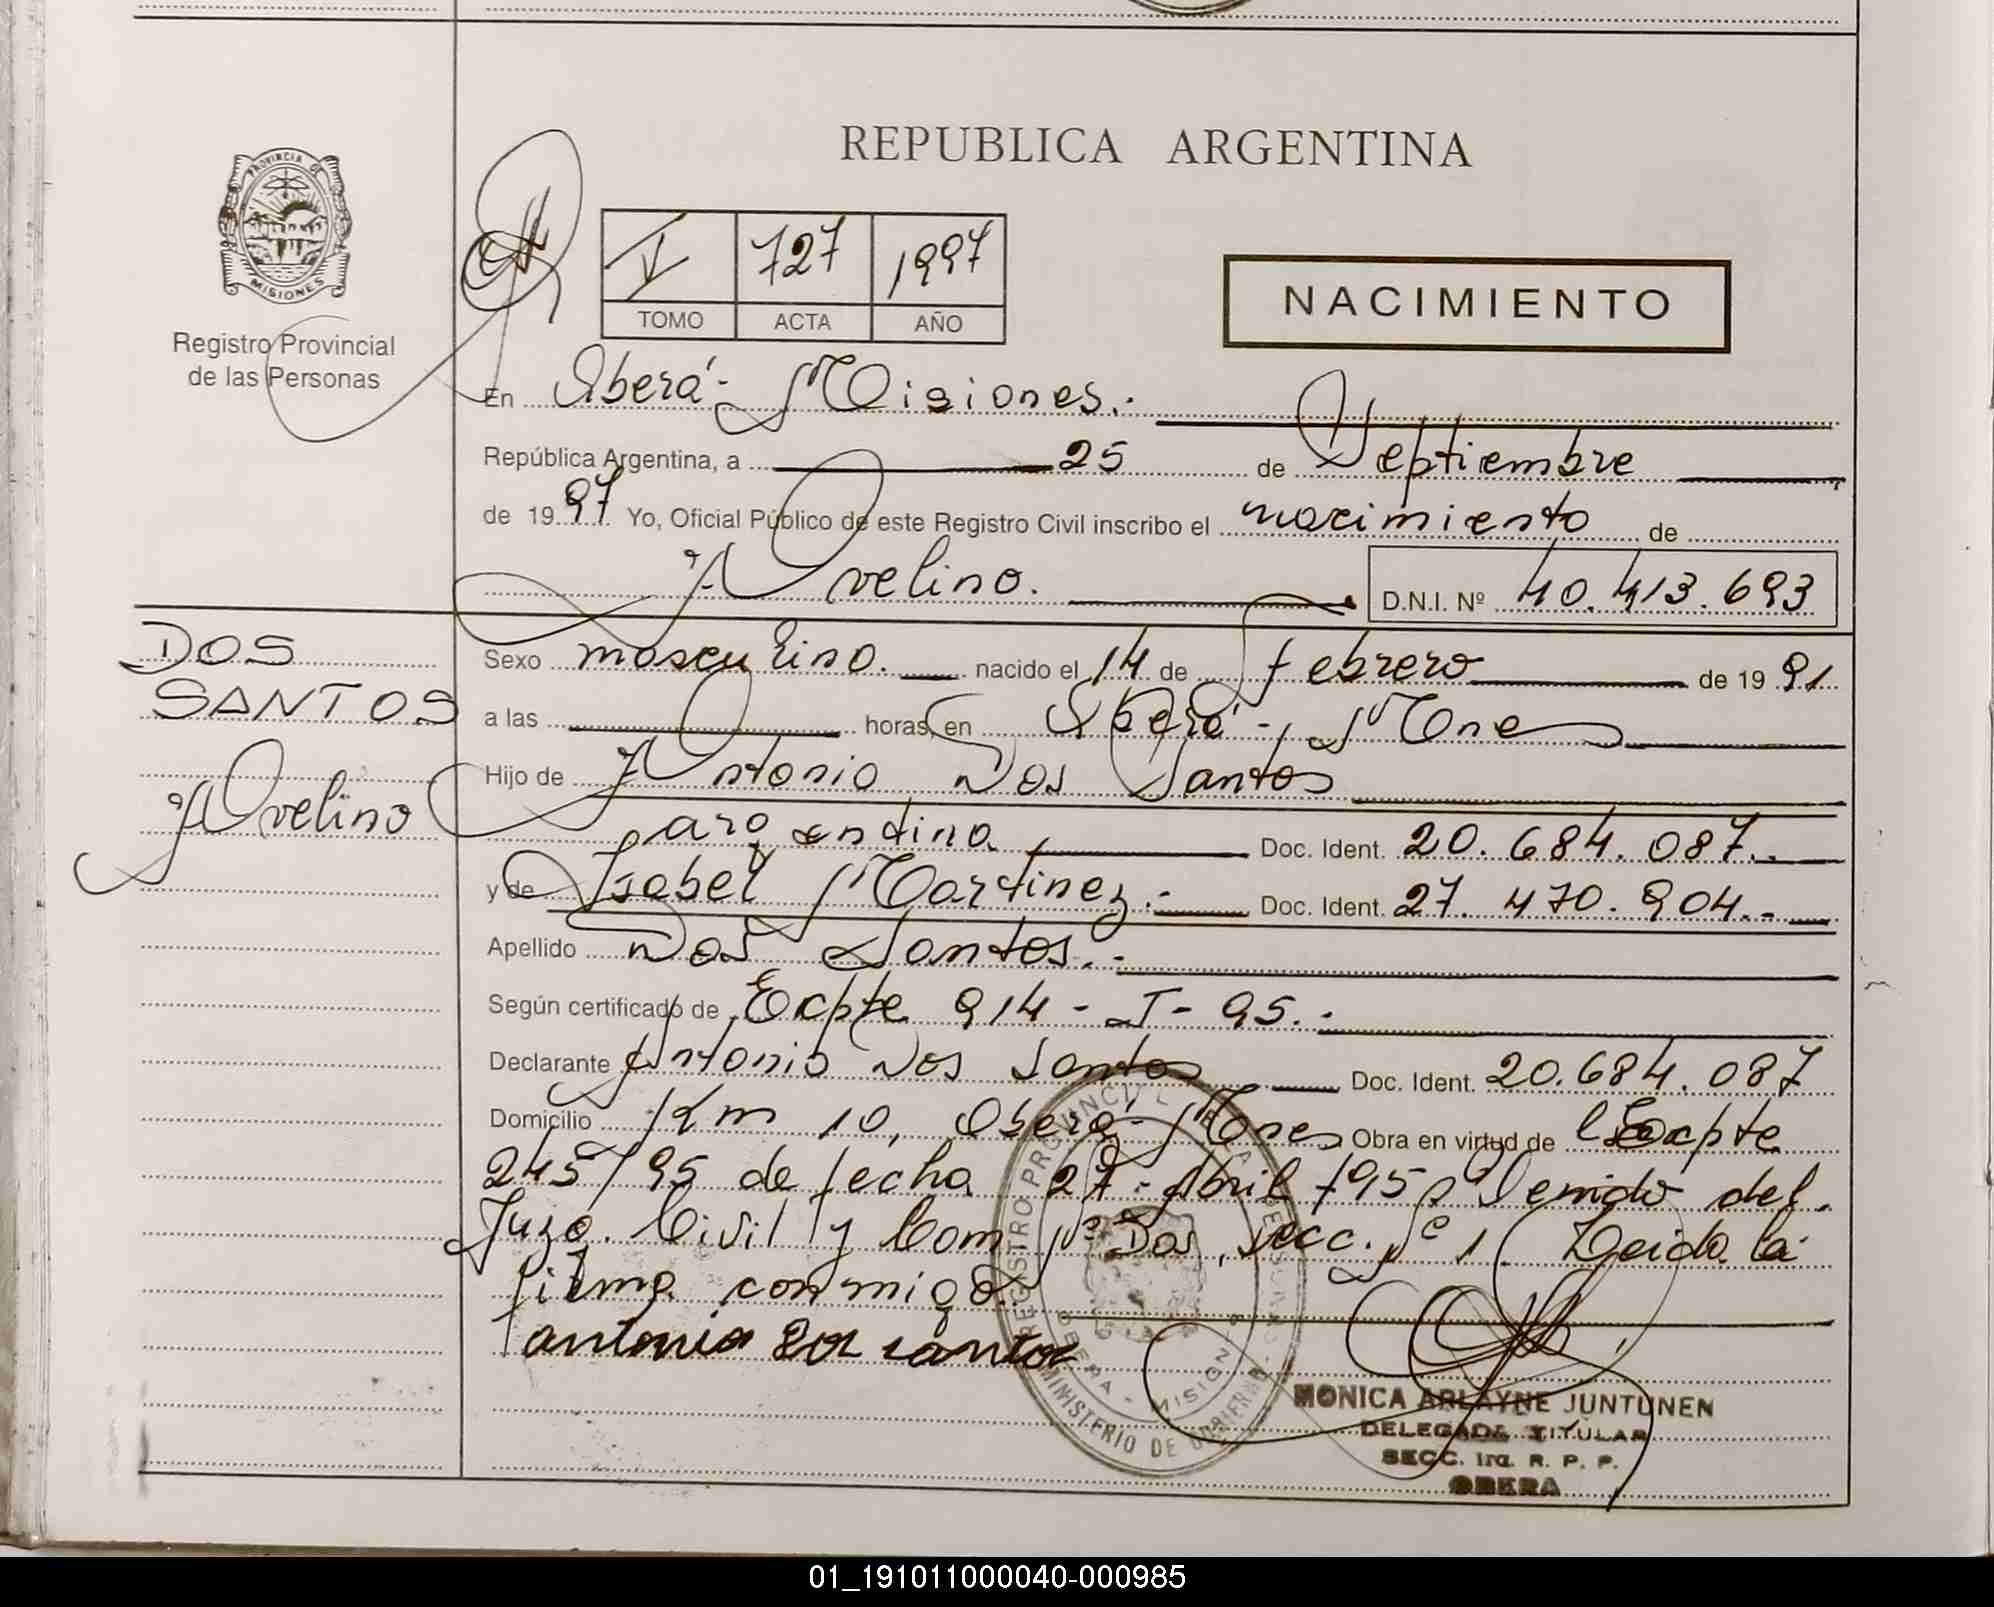 REPUBLICA ARGENTINA
PROVINCIA DE
MISIONES
Registro Provincial
de las Personas
V 727 1997
TOMO ACTA AÑO
NACIMIENTO
En Oberá - Misiones.-
República Argentina, a 25 de Septiembre
de 1997 Yo, Oficial Público de este Registro Civil inscribo el nacimiento de
Avelino. D.N.I. Nº 40.413.693
DOS
SANTOS
Avelino
Sexo masculino. nacido el 14 de febrero de 1991
a las horas, en Oberá - Mnes
Hijo de Antonio Dos Santos
argentino Doc. Ident. 20.684.087.-
y de Isabel Martinez.- Doc. Ident. 27.470.904.-
Apellido Dos Santos.-
Según certificado de Expte 914 - I - 95.-
Declarante Antonio Dos Santos Doc. Ident. 20.684.087
Domicilio Km 10, Oberá - Mnes Obra en virtud de Expte
245/95 de fecha 27 - Abril /95 del
Juzg. Civil y Com Nº Dos, Secc. Nº 1 Leida la
firma conmigo.
antonio Dos santos
REGISTRO PROVINCIAL DE LAS PERSONAS
OBERA - MISIONES
MINISTERIO DE GOBIERNO
MONICA ARLAYNE JUNTUNEN
DELEGADA TITULAR
SECC. 1ra. R. P. P.
OBERA
01_191011000040-000985